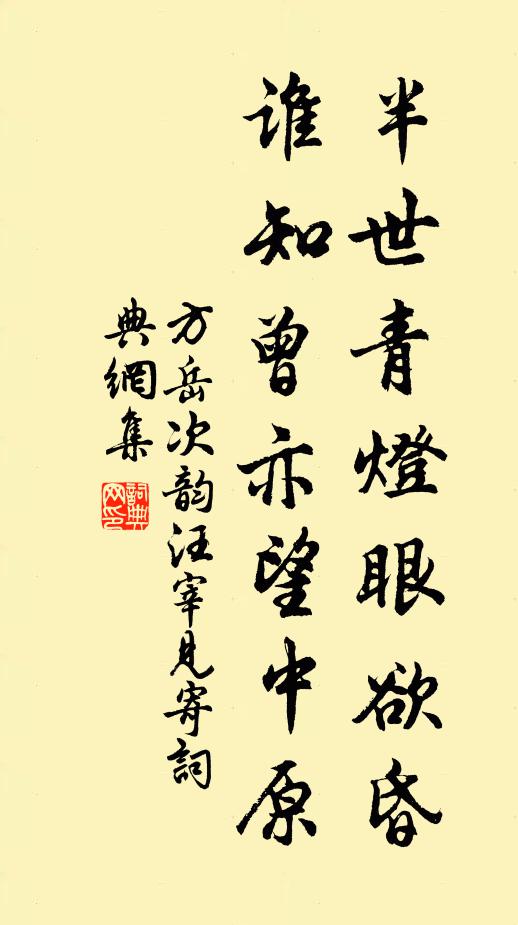 半世青燈眼欲昏
誰知曾亦望中原
方岳次韵汪宰見寄詞
典網集
詞典網印